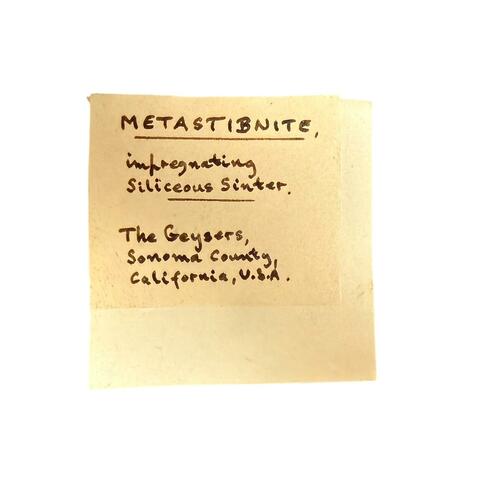 METASTIBNITE,
impregnating
Siliceous Sinter.
The Geysers,
Sonoma County,
California, U.S.A.